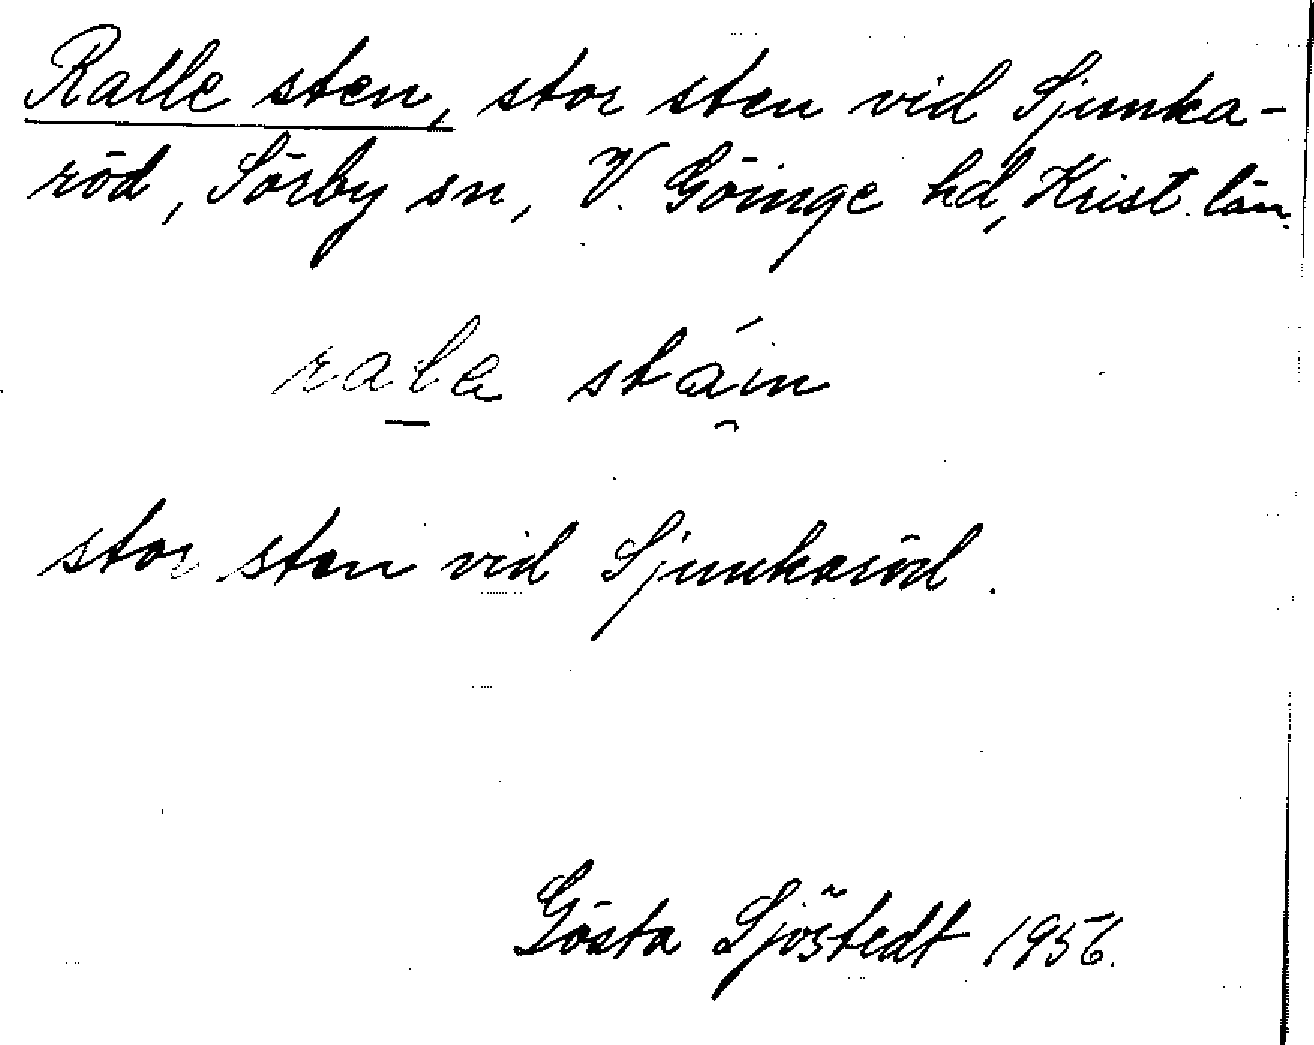 Ralle sten, stor sten vid Sjunka-
röd, Sörby sn, V. Göinge hd, Krist. län.
rala stáin
stor sten vid Sjunkaröd.
Gösta Sjöstedt 1956.